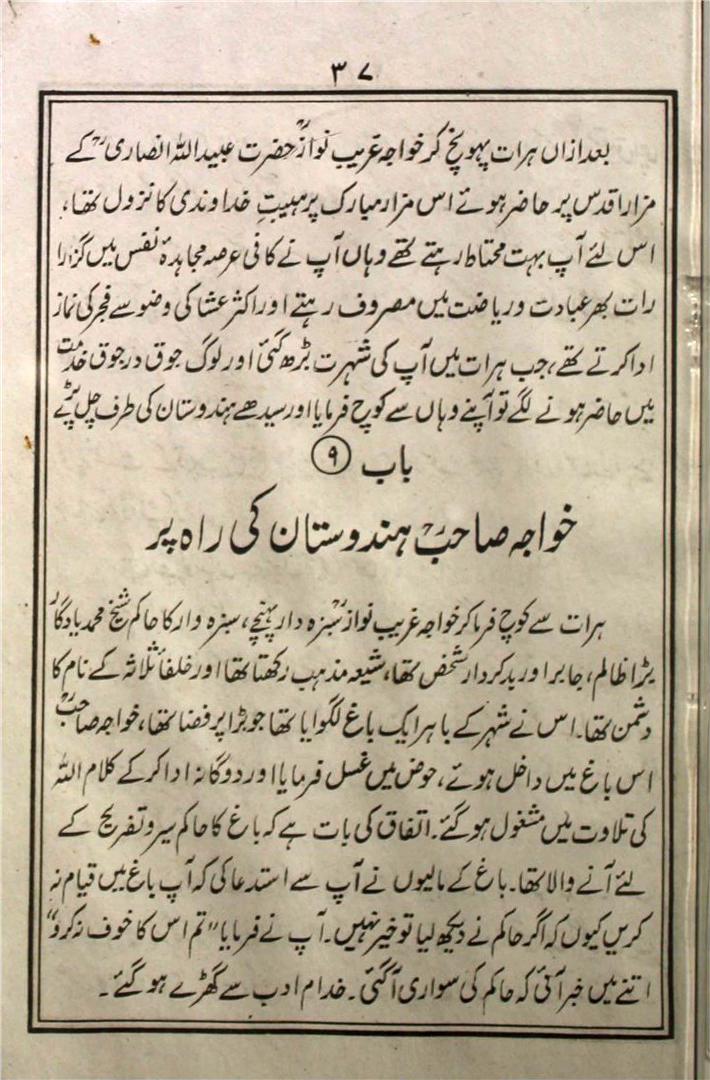 ۳۷
بعد ازاں ہرات پہونچ کر خواجہ غریب نوازؒ حضرت عبید اللہ انصاریؒ کے
مزار اقدس پر حاضر ہوئے اس مزار مبارک پر ہیبتِ خداوندی کا نزول تھا،
اس لئے آپ بہت محتاط رہتے تھے وہاں آپ نے کافی عرصہ مجاہدۂ نفس میں گزارا
رات بھر عبادت و ریاضت میں مصروف رہتے اور اکثر عشا کی وضو سے فجر کی نماز
ادا کرتے تھے، جب ہرات میں آپ کی شہرت بڑھ گئی اور لوگ جوق در جوق خدمت
میں حاضر ہونے لگے تو آپنے وہاں سے کوچ فرمایا اور سیدھے ہندوستان کی طرف چل پڑے
باب ۹
خواجہ صاحبؒ ہندوستان کی راہ پر
ہرات سے کوچ فرما کر خواجہ غریب نوازؒ سبزہ دار پہنچے، سبزہ وار کا حاکم شیخ محمد یادگار
بڑا ظالم، جابر اور بدکردار شخص تھا، شیعہ مذہب رکھتا تھا اور خلفأ ثلاثہ کے نام کا
دشمن تھا۔ اس نے شہر کے باہر ایک باغ لگوایا تھا جو بڑا پر فضا تھا، خواجہ صاحبؒ
اس باغ میں داخل ہوئے، حوض میں غسل فرمایا اور دوگانہ ادا کر کے کلام اللہ
کی تلاوت میں مشغول ہو گئے۔ اتفاق کی بات ہے کہ باغ کا حاکم سیر و تفریح کے
لئے آنے والا تھا۔ باغ کے مالیوں نے آپ سے استدعا کی کہ آپ باغ میں قیام نہ
کریں کیوں کہ اگر حاکم نے دیکھ لیا تو خیر نہیں۔ آپ نے فرمایا "تم اس کا خوف نہ کرو"
اتنے میں خبر آئی کہ حاکم کی سواری آ گئی۔ خدام ادب سے گھڑے ہو گئے۔